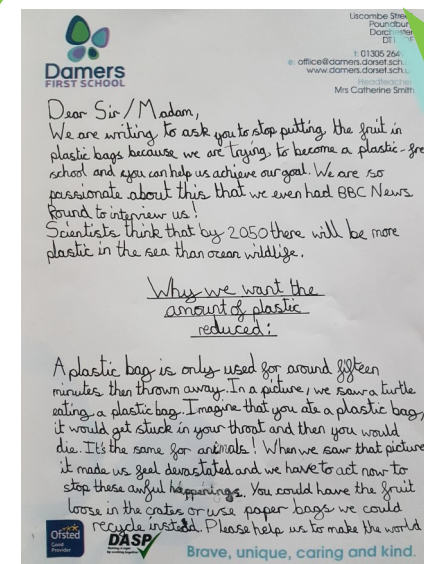 Liscombe Stre
Poundbur
Dorchester
DT1
Damers
FIRST SCHOOL
t: 01305 264
e: office@damers.dorset.sch.
www.damers.dorset.sch.
Headteacher
Mrs Catherine Smith
Dear Sir/Madam,
We are writing to ask you to stop putting the fruit in
plastic bags because we are trying to become a plastic-fre
school and you can help us achieve our goal. We are so
passionate about this that we even had BBC News
Round to interview us!
Scientists think that by 2050 there will be more
plastic in the sea than ocean wildlife.
Why we want the
amount of plastic
reduced:
A plastic bag is only used for around fifteen
minutes then thrown away. In a picture, we saw a turtle
eating a plastic bag. Imagine that you ate a plastic bag,
it would get stuck in your throat and then you would
die. It's the same for animals! When we saw that picture
it made us feel devastated and we have to act now to
stop these awful happenings. You could have the fruit
loose in the crates or use paper bags we could
recycle instead. Please help us to make the world
Ofsted
Good
Provider
DASP
Brave, unique, caring and kind.